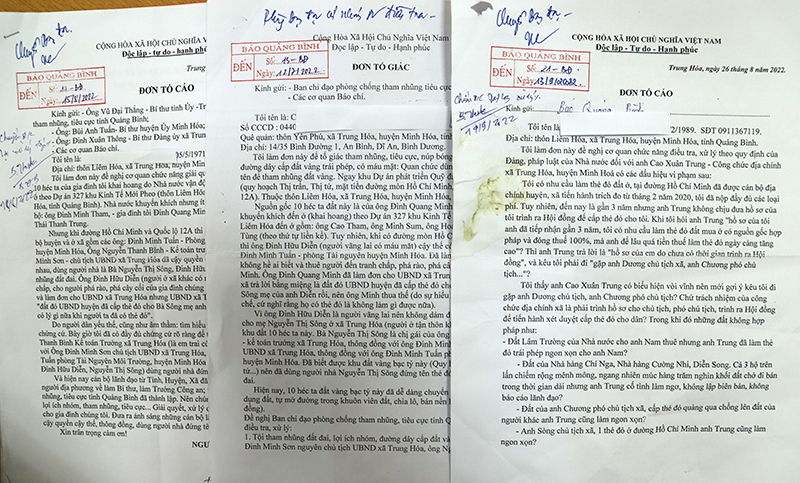 CỘNG HÒA XÃ HỘI CHỦ NGHĨA VIỆT
Độc lập - Tự do - Hạnh phúc
BÁO QUẢNG BÌNH
ĐẾN
Số:
Ngày: 15/8/2022
Trung
ĐƠN TỐ CÁO
Kính gửi: - Ông Vũ Đại Thắng - Bí thư tỉnh Ủy - Tr
tham nhũng, tiêu cực tỉnh Quảng Bình;
- Ông: Bùi Anh Tuấn- Bí thư huyện Ủy Minh Hóa;
- Ông: Đinh Xuân Thông - Bí thư Đảng ủy xã Trung
- Các cơ quan Báo chí.
Tôi tên là:
05/5/1971
Địa chỉ: thôn Liêm Hóa, xã Trung Hóa, huyện Minh
Tôi làm đơn này đề nghị cơ quan chức năng giải qu
10 héc ta của gia đình tôi khai hoang do Nhà nước vận độ
theo Dự án 327 khu Kinh Tế Mới Pheo (thôn Liêm Hóa
Hóa, tỉnh Quảng Bình). Nhà nước khuyến khích nhưng ít
hộ: ông Đinh Minh Tham, - gia đình tôi Đinh Quang Min
Thái Thanh Trung.
Nhưng khi đường Hồ Chí Minh và Quốc lộ 12A thi
bộ huyện và ở xã gồm các ông: Đinh Minh Tuấn - Phòng
huyện Minh Hóa, Ông Nguyễn Thanh Bình - Kế toán trư
Minh Sơn - chủ tịch UBND xã Trung Hóa đã cậy quyền
nhau, dùng người nhà là Bà Nguyễn Thị Sông, Đinh Hữ
những lát đất dài. Ông Đinh Hữu Diễn (người ở xã khác có
cho, cho người phá rào, phá cây cối của gia đình chúng
và làm đơn cho UBND xã Trung Hóa nhưng UBND xã T
"đất đó UBND huyện đã cấp thẻ đỏ cho Bà Sông mẹ anh
có lý gì nữa khi người ta đã có thẻ đỏ".
Do người dân yếu thế, cũng như âm thầm tìm hiểu
chứng cứ. Bây giờ tôi đã có đầy đủ chứng cứ rõ ràng để
Thanh Bình Kế toán Trưởng xã Trung Hóa (là em trai củ
với Ông Đinh Minh Sơn chủ tịch UBND xã Trung Hóa,
Tuấn phòng Tài Nguyên Môi Trường, huyện Minh Hóa
Đinh Hữu Diễn, Nguyễn Thị Sông) dùng người nhà đứng
Và hiện nay cán bộ lãnh đạo từ Tỉnh, Huyện, Xã đã
người địa phương về làm Bí thư, làm Trưởng Công an;
nhũng, tiêu cực tỉnh Quảng Bình đã thành lập. Nên chún
lợi ích nhóm, tham nhũng, tiêu cực... Giải quyết, xử lý d
cho gia đình chúng tôi. Đưa ra ánh sáng những cán bộ l
cậy quyền cậy thế, thông đồng, dùng người nhà đứng tê
Xin trân trọng cảm ơn!
NGƯ
Cộng Hòa Xã Hội Chủ Nghĩa Việt Nam
Độc Lập - Tự do - Hạnh Phúc
BÁO QUẢNG BÌNH
ĐẾN
Số: 13-BĐ
Ngày:
ĐƠN TỐ GIÁC
Kính gửi: - Ban chỉ đạo phòng chống tham nhũng, tiêu cực
- Các cơ quan Báo chí.
Tôi tên là: C
Số CCCD : 0440
Quê quán: thôn Yên Phú, xã Trung Hóa, huyện Minh Hóa, tỉnh
Địa chỉ: 14/35 Bình Đường 1, An Bình, Dĩ An, Bình Dương.
Tôi làm đơn này để tố giác tham nhũng, tiêu cực, núp bóng
đường dây cấp đất vàng trái phép, có máu mặt: Quan chức dùng
tên để tham nhũng đất vàng. Ngay khu Dự án phát triển Quỹ đ
(quy hoạch Thị trấn, Thị tứ, mặt tiền đường môn Hồ Chí Minh
12A). Thuộc thôn Liêm Hóa, xã Trung Hóa, huyện Minh Hóa,
Nguồn gốc 10 héc ta đất vàng này là của ông Đinh Quang M
khuyến khích đến ở (khai hoang) theo Dự án 327 khu Kinh Tế
Liêm Hóa đến ở gồm: ông Cao Tham, ông Minh Sum, ông Học
Tùng (theo thứ tự liền kề). Tuy nhiên, khi có đường mòn Hồ C
thì ông Đinh Hữu Diễn (người vãng lai có máu mặt) cậy thế cậ
Đinh Minh Tuấn - phòng Tài nguyên huyện Minh Hóa. Đã làm
không hề ai biết và thuê người đến tranh chấp, phá rào, phá câ
Minh. Ông Đinh Quang Minh đã làm đơn cho UBND xã Trung
xã trả lời bằng miệng là đất đó UBND huyện đã cấp thẻ đỏ cho
Sông mẹ của anh Diễn rồi, nên ông Minh thua thế (do sự hiểu
chế, cứ nghĩ rằng họ có thẻ đỏ là không làm gì được nữa).
Vì ông Đinh Hữu Diễn là người vãng lai nên không dám đứ
cho mẹ Nguyễn Thị Sông ở xã Trung Hóa (người ở tận thôn kh
khu đất 10 héc ta này. Bà Nguyễn Thị Sông là chị gái của ông
- kế toán trưởng xã Trung Hóa, thông đồng với ông Đinh Minh
UBND xã Trung Hóa, thông đồng với ông Đinh Minh Tuấn p
huyện Minh Hóa. Đã biết được khu đất vàng bạc tỷ này (Quy h
tứ...) nên đã dùng người nhà Nguyễn Thị Sông đứng tên thẻ đ
dài.
Hiện nay, 10 héc ta đất vàng bạc tỷ này đã dễ dàng chuyển
dụng đất, tự mở đường trong khuôn viên đất, chia lô, bán nền
đồng).
Đề nghị Ban chỉ đạo phòng chống tham nhũng, tiêu cực tỉnh Q
điều tra, xử lý:
1. Tội tham nhũng đất đai, lợi ích nhóm, đường dây cấp đất và
Đinh Minh Sơn nguyên chủ tịch UBND xã Trung Hóa, ông Ng
CỘNG HÒA XÃ HỘI CHỦ NGHĨA VIỆT NAM
Độc lập - Tự do - Hạnh phúc
BÁO QUẢNG BÌNH
ĐẾN
Số: 21-BĐ
Ngày:
Trung Hóa, ngày 26 tháng 8 năm 2022.
ĐƠN TỐ CÁO
Kính gửi: Báo Quảng Bình
Tôi tên là:
2/1989. SĐT 0911367119.
Địa chỉ: thôn Liêm Hóa, xã Trung Hóa, huyện Minh Hóa, tỉnh Quảng Bình.
Tôi làm đơn này đề nghị cơ quan chức năng điều tra, xử lý theo quy định của
Đảng, pháp luật của Nhà nước đối với anh Cao Xuân Trung - Công chức địa chính
xã Trung Hóa, huyện Minh Hoá có các dấu hiệu vi phạm sau:
Tôi có nhu cầu làm thẻ đỏ đất ở, tại đường Hồ Chí Minh đã được cán bộ địa
chính huyện, xã tiến hành trích đo từ tháng 2 năm 2020, tôi đã nộp đầy đủ các loại
phí. Tuy nhiên, đến nay là gần 3 năm nhưng anh Trung không chịu đưa hồ sơ của
tôi trình ra Hội đồng để cấp thẻ đỏ cho tôi. Khi tôi hỏi anh Trung "hồ sơ của tôi
anh đã tiếp nhận gần 3 năm, tôi có nhu cầu làm thẻ đỏ đất mua ở có nguồn gốc hợp
pháp và đóng thuế 100%, mà anh để lâu quá tiền thuế làm thẻ đỏ ngày càng tăng
cao? Thì anh Trung trả lời là "hồ sơ của em do chưa có thời gian trình ra Hội
đồng", và kêu tôi phải đi "gặp anh Dương chủ tịch xã, anh Chương phó chủ
tịch..."?
Tôi thấy anh Cao Xuân Trung có biểu hiện vòi vĩnh nên mới gợi ý kêu tôi đi
gặp anh Dương chủ tịch, anh Chương phó chủ tịch? Chứ trách nhiệm của công
chức địa chính xã là phải trình hồ sơ cho chủ tịch, phó chủ tịch, trình ra Hội đồng
để tiến hành xét duyệt cấp thẻ đỏ cho dân? Trong khi đó những đất không hợp
pháp như:
- Đất Lâm Trường của Nhà nước cho anh Nam thuê nhưng anh Trung đã làm
thẻ đỏ trái phép ngon xọn cho anh Nam?
- Đất của Nhà hàng Chí Nga, Nhà hàng Cường Nhi, Diễn Song. Cả 3 hộ trên
lấn chiếm rộng mênh mông, ngang nhiên múc hàng trăm nghìn khối đất chở đi bán
trong thời gian dài nhưng anh Trung cố tình làm ngơ, không lập biên bản, không
báo cáo lãnh đạo?
- Đất của anh Chương phó chủ tịch xã, cấp thẻ đỏ quàng qua chồng lên đất của
người khác anh Trung cũng làm ngon xọn?
- Anh Sông chủ tịch xã, 1 thẻ đỏ ở đường Hồ Chí Minh anh Trung cũng làm
ngon xọn?